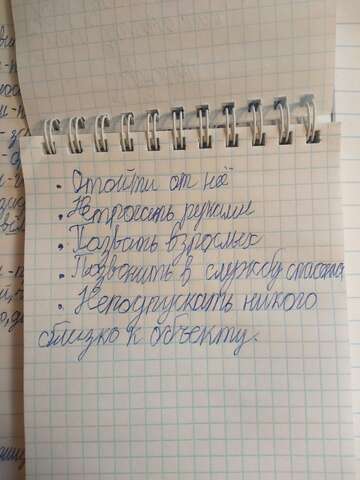 · Отойти от неё
· Нетрогать руками
· Позвать взрослых
· Позвонить в службу спасения
· Неподпускать никого
близко к объекту.